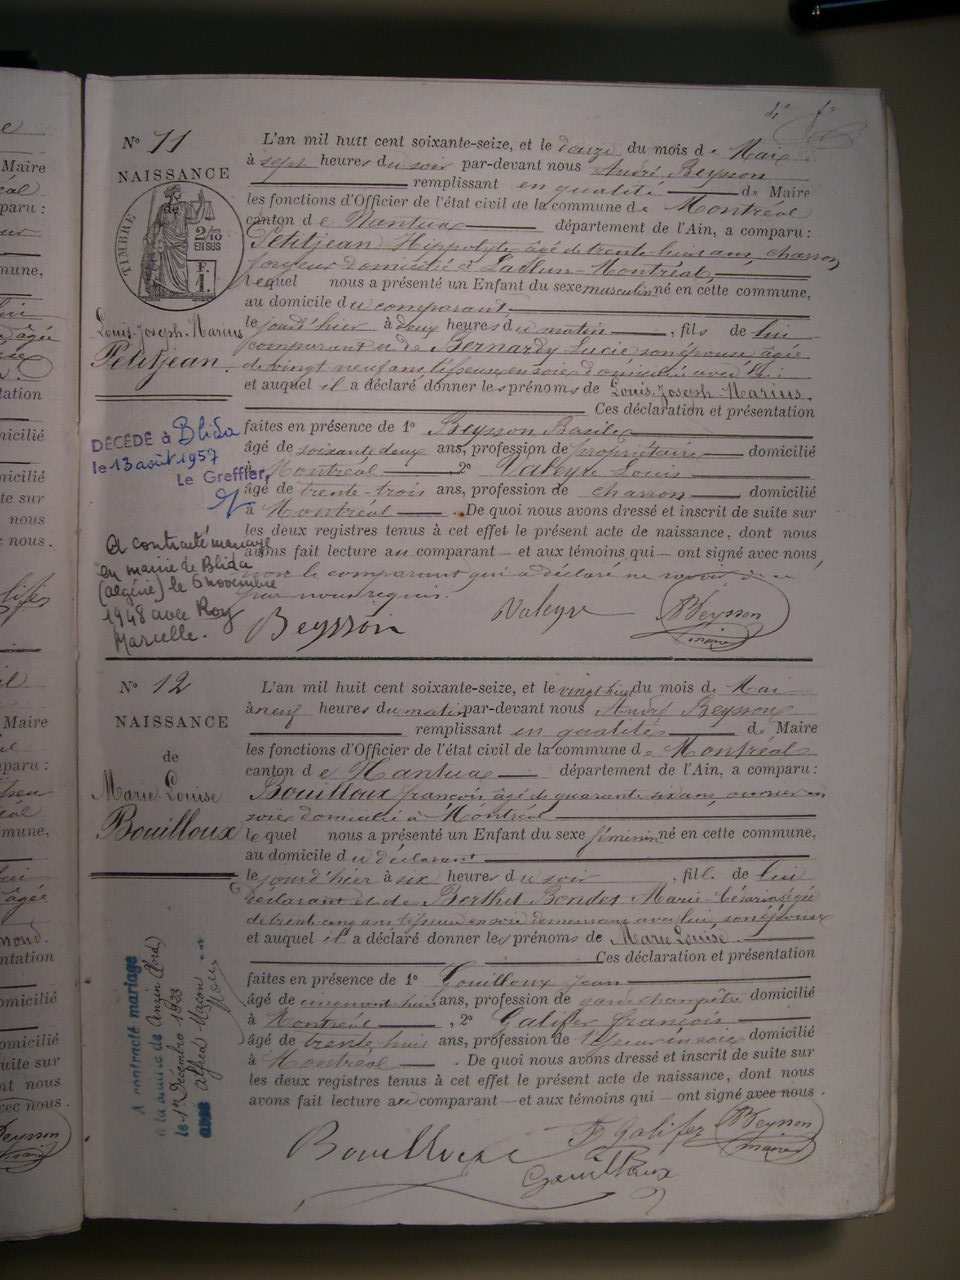 Nº 11
NAISSANCE
de
TIMBRE
2/10
EN SUS
F.
1.
Louis-Joseph-Marius
Petitjean.
DÉCÉDÉ à Blida
le 13 août 1957
Le Greffier,
A contracté mariage
en mairie de Blida
(algérie) le 6 novembre
1948 avec Roy
Marcelle.
L'an mil huit cent soixante-seize, et le douze du mois de Mai
à sept heures du soir par-devant nous André Beysson
remplissant en qualité de Maire
les fonctions d'Officier de l'état civil de la commune de Montréal
canton de Nantua département de l'Ain, a comparu :
Petitjean Hippolyte âgé de trente-huit ans, charron
forgeur domicilié à Montréal
lequel nous a présenté un Enfant du sexe masculin né en cette commune,
au domicile du comparant
le jourd'hier à deux heures du matin, fils de lui
comparant et de Bernardy Lucie son épouse âgée
de vingt neuf ans, tisseuse en soie domiciliée avec lui
et auquel il a déclaré donner les prénoms de Louis-Joseph-Marius.
Ces déclaration et présentation
faites en présence de 1º Beysson Basile
âgé de soixante deux ans, profession de propriétaire domicilié
à Montréal 2º Valeyre Louis
âgé de trente-trois ans, profession de charron domicilié
à Montréal. De quoi nous avons dressé et inscrit de suite sur
les deux registres tenus à cet effet le présent acte de naissance, dont nous
avons fait lecture au comparant et aux témoins qui ont signé avec nous,
non le comparant qui a déclaré ne savoir de ce
par nous requis.
Beysson Valeyre Beysson
maire
Nº 12
NAISSANCE
de
Marie Louise
Bouilloux
A contracté mariage
à la mairie de Anzin (Nord)
le 1er Décembre 1933
avec Alfred
L'an mil huit cent soixante-seize, et le vingt huit du mois de Mai
à neuf heures du matin par-devant nous André Beysson
remplissant en qualités de Maire
les fonctions d'Officier de l'état civil de la commune de Montréal
canton de Nantua département de l'Ain, a comparu :
Bouilloux françois, âgé de quarante six ans, ouvrier en
soies domicilié à Montréal
lequel nous a présenté un Enfant du sexe féminin né en cette commune,
au domicile du déclarant
le jourd'hier à six heures du soir, fill. de lui
déclarant et de Berthet Bondet Marie Césarie âgée
de trente cinq ans tisseuse en soie demeurant avec lui, son épouse
et auquel il a déclaré donner les prénoms de Marie Louise.
Ces déclaration et présentation
faites en présence de 1º Gouilloux Jean
âgé de cinquante huit ans, profession de garde champêtre domicilié
à Montréal, 2º Galifer françois
âgé de trente huit ans, profession de tisseur en soie domicilié
à Montréal. De quoi nous avons dressé et inscrit de suite sur
les deux registres tenus à cet effet le présent acte de naissance, dont nous
avons fait lecture au comparant et aux témoins qui ont signé avec nous.
Bouilloux F Galifer Beysson
maire
Gouilloux